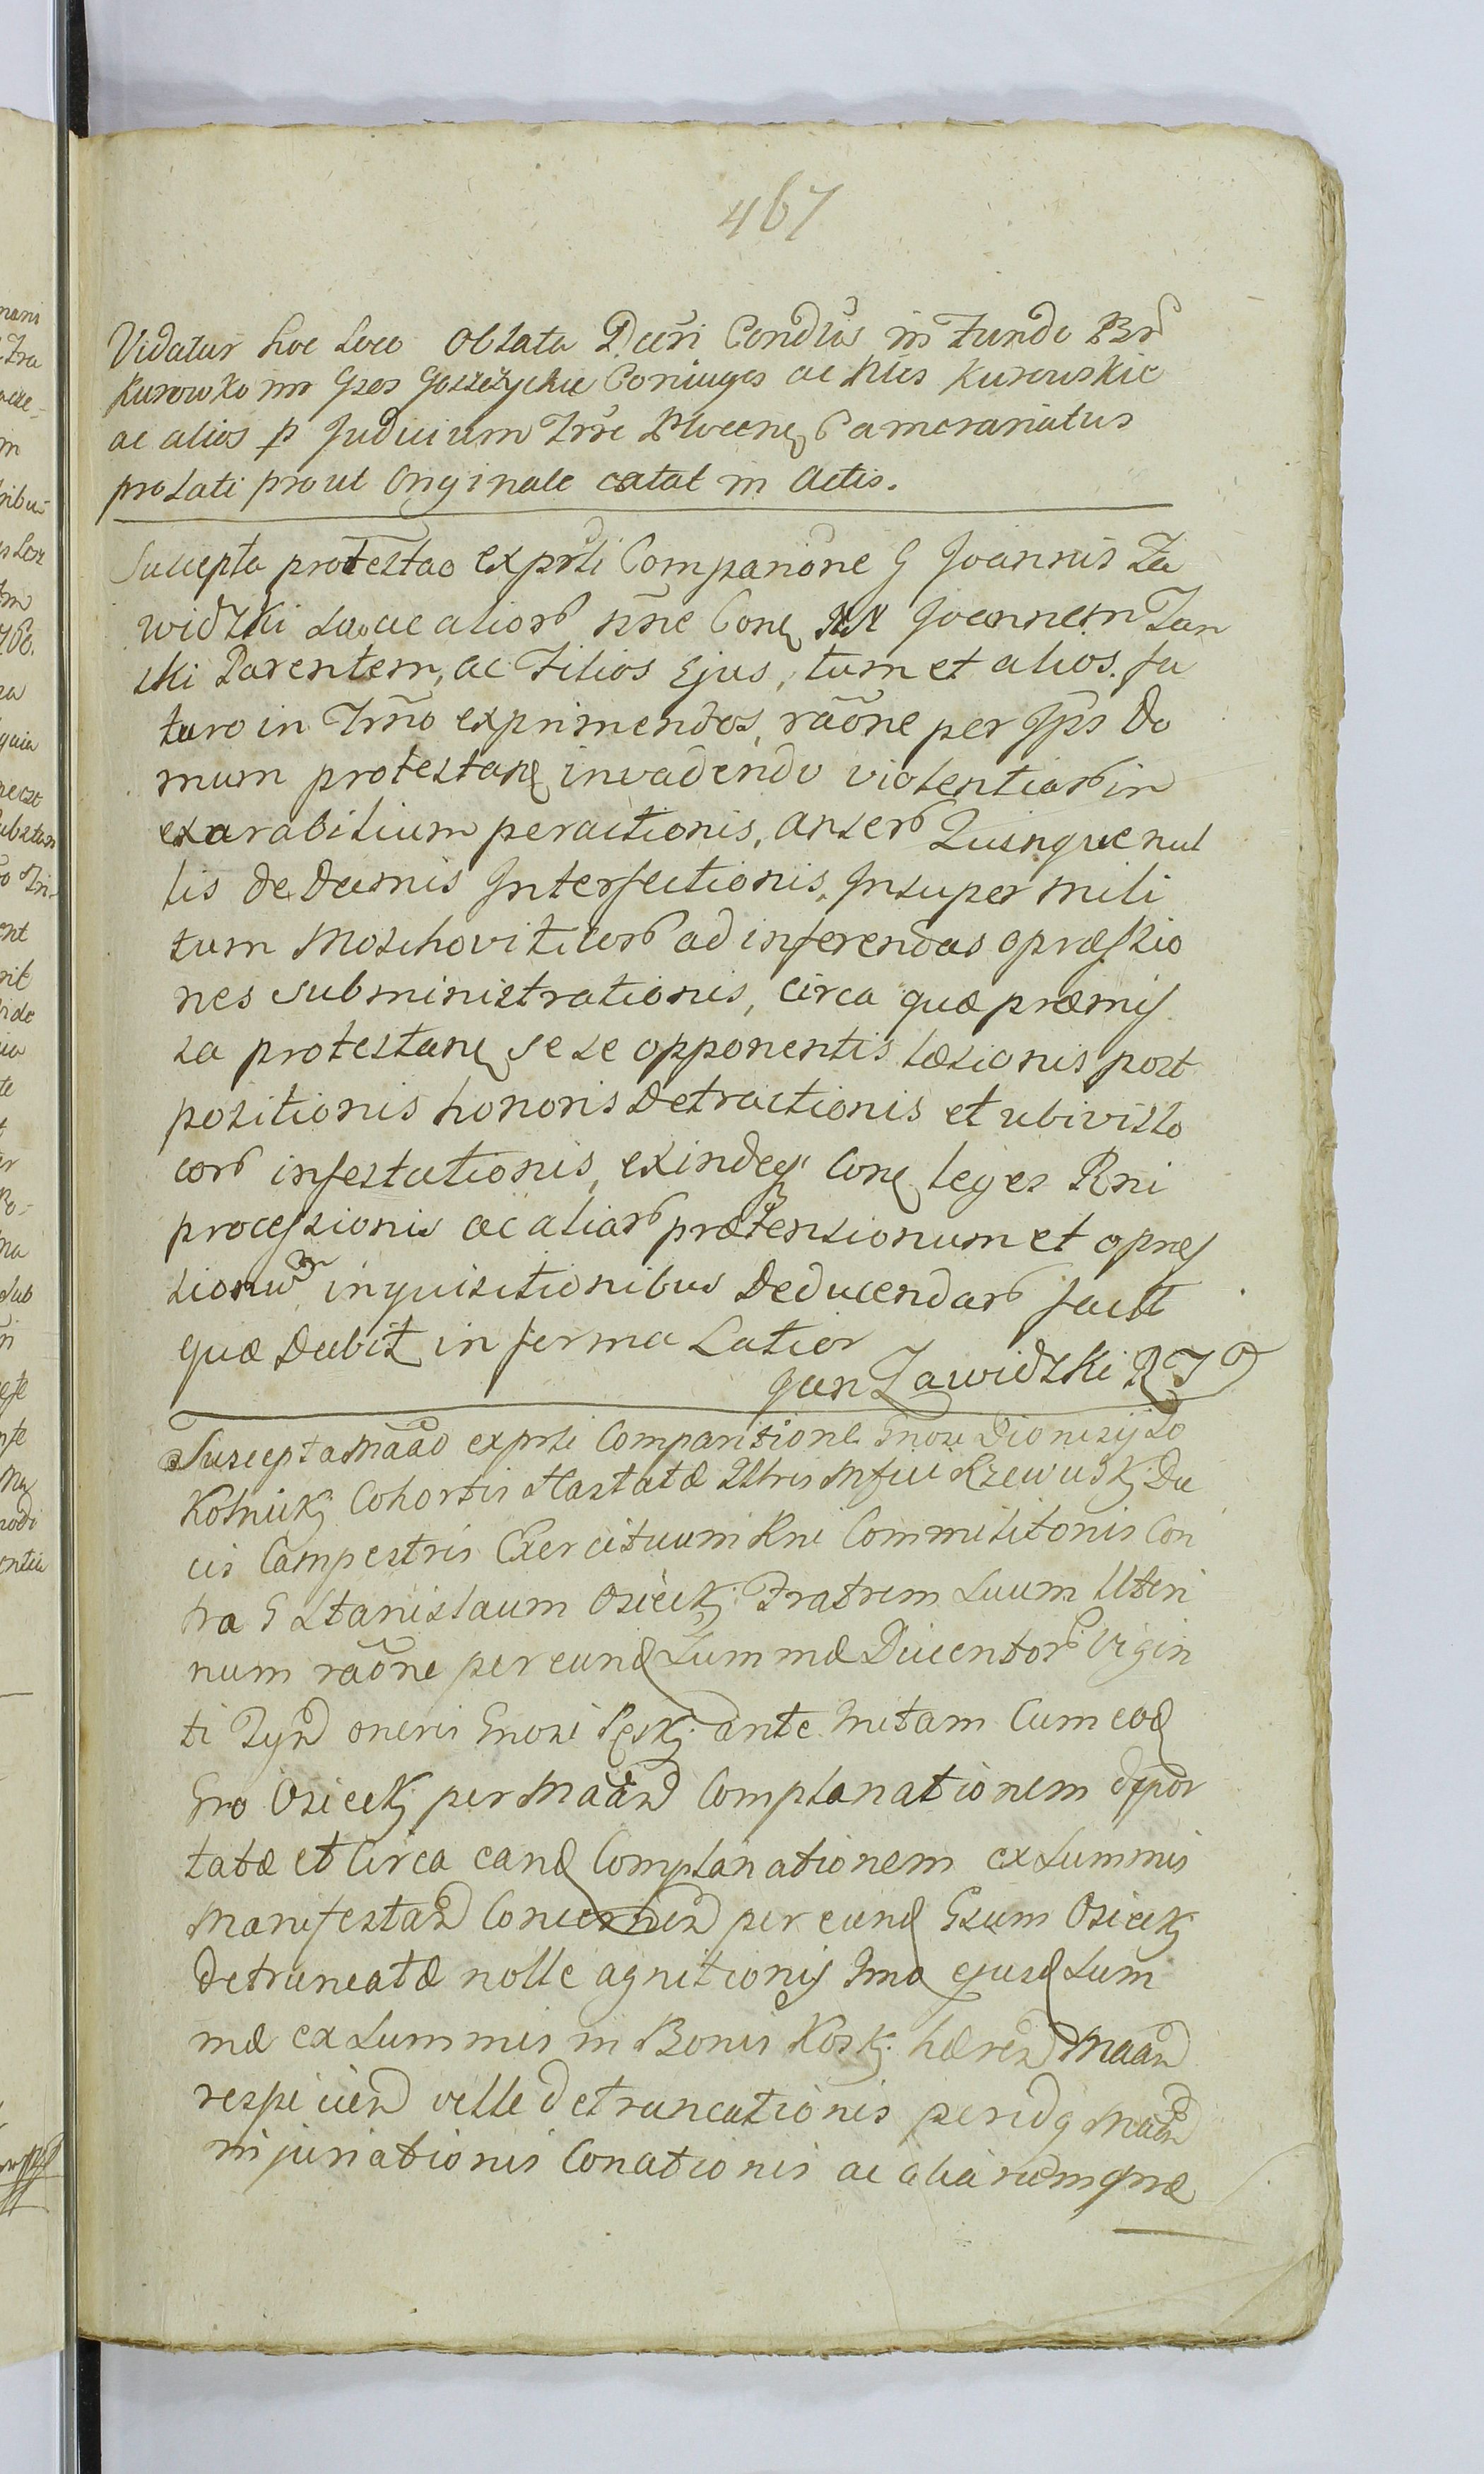 467
Vidatur hoc Loco Oblata Dcti Condlis in Fundo Br
Kurowko inr Gsos Goszczyckie Coniuges ac Nles Kurowskie
ac alios p Judicium Trre Plocen Camerariatus
prolati prout Originale extat in Actis.
Suscepta protestao exprsti Companione G Joannis Za
widzki suo ac alior nne Con NN Joannem Zan
ski Parentem, ac Filios Ejus, tum et alios. fu
turo in Trmo exprimendos, raone per Ipos Do
mum protestan invadendo violentiar in
exarabilium peractionis, anser Quinque nul
lis de Damis Interfectionis, Insuper mili
tum Moschoviticor ad inferendas opræssio
nes subministrationis, circa quæ præmis
sa protestan se se opponentis læsionis post
positionis honoris Detractionis et ubivislo
cor infestationis, exindeq Con leges Rni
processionis ac aliar prætensionum et opres
sionu inquisitionibus Deducendar facit
quæ Dabit in forma Latior
Jan Zawidzki R
Suscepta Maao exprsti Comparitione Gnosi Dionizij So
Kolnicki Cohortis Hastatæ Illtris Mfici Rzewuski Du
cis Campestris Exercituum Rni Commilitonis Con
tra G Stanislaum Osiecki Fratrem Suum Uteri
num raone per eund Summæ Ducentor Vigin
ti Tyn oneris Gnosi ante Mitam Cum eod
Gro Osiecki per Maan Complanationem appor
tatæ et Circa eand Complanationem ex Summis
Manifestan Concernen per eund Gsum Osiecki
detruncatæ nolle agnitionis Imo ejusd Sum
mæ ex Summis in Bonis Koski hæren Maan
respicien velle detruncationis peridq Maan
injuriationis Conationis ac aliarumqræ